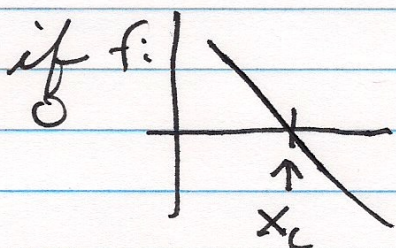 if f:
x_c